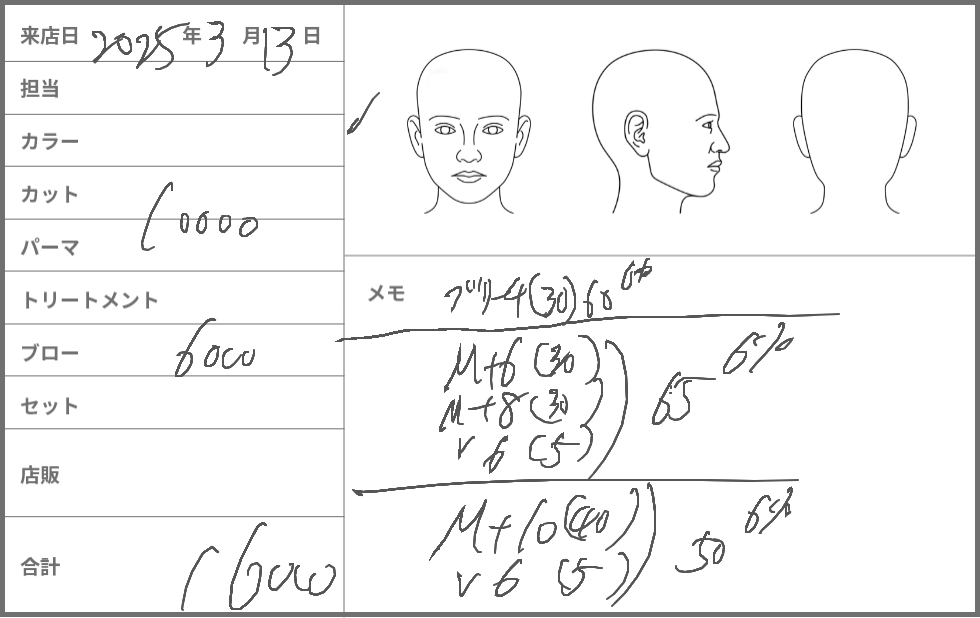 来店日 2025年3月13日
担当
カラー
カット
10000
パーマ
トリートメント
ブロー 6000
セット
店販
合計 16000
メモ ブリー4(30) 60 6%
M+6 (30)
M+8 (30)
V 6 (5)
65 6%
M+10 (40)
V 6 (5)
50 6%